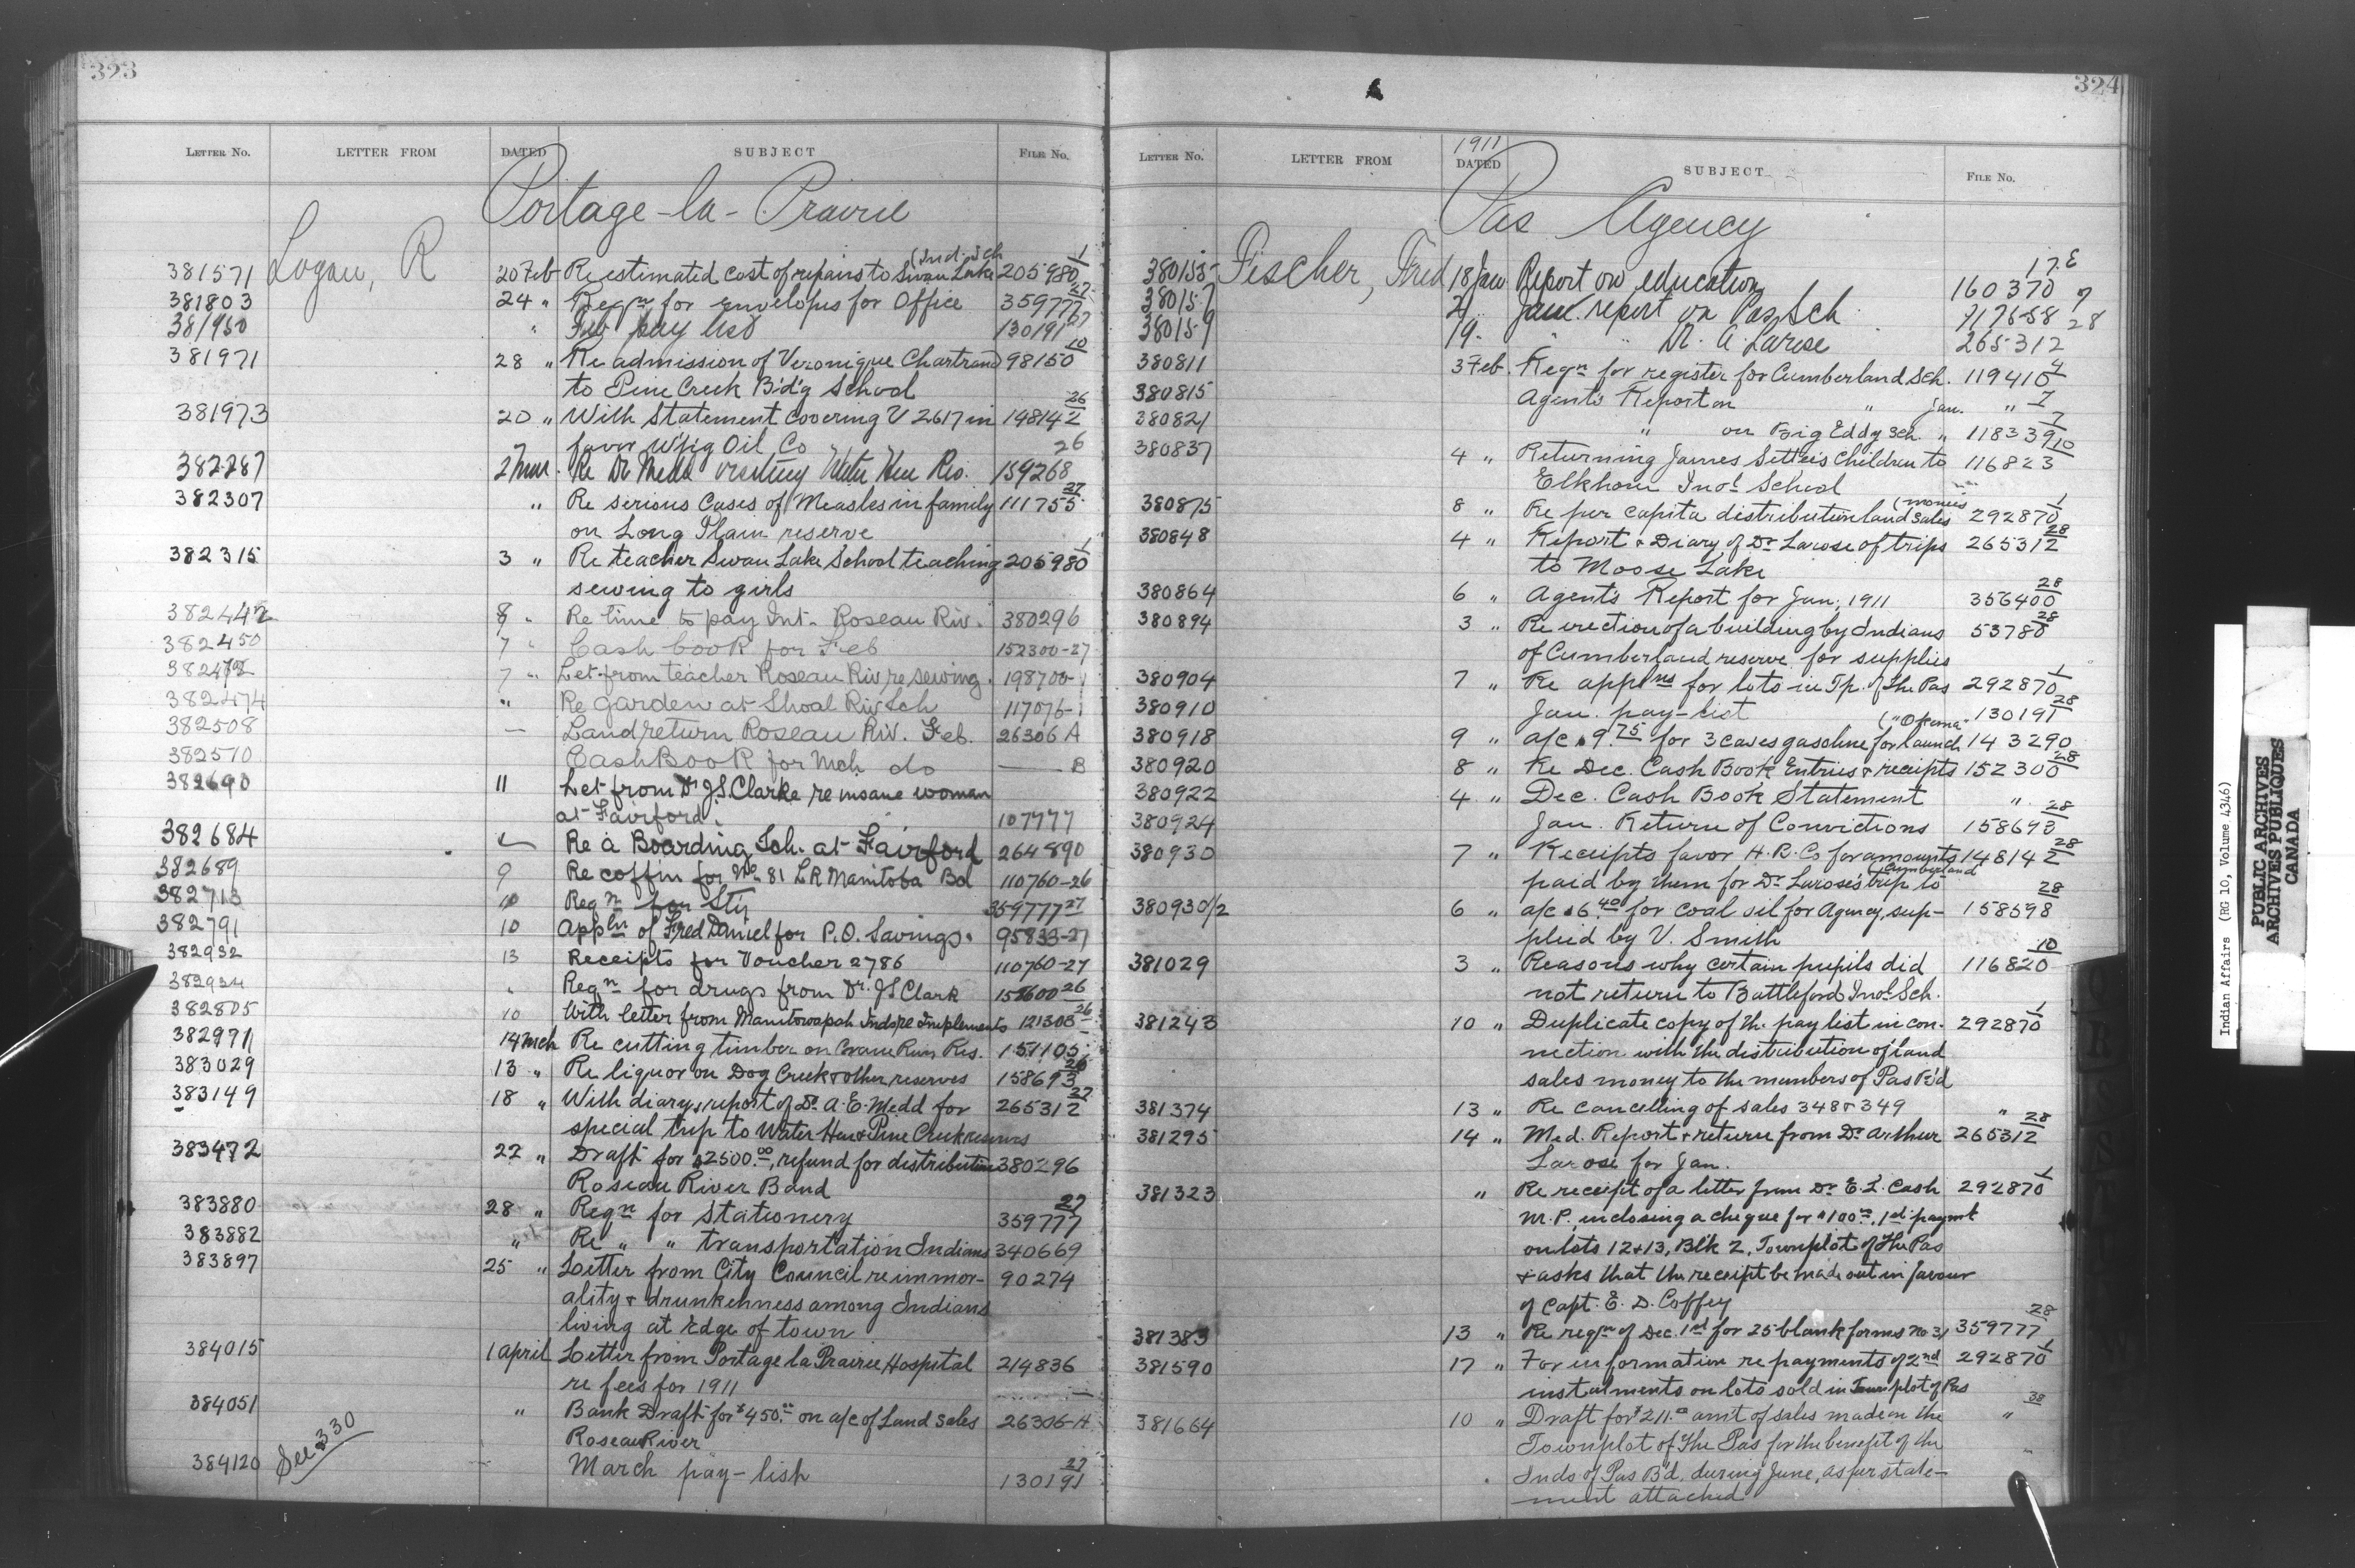 323
LETTER NO. LETTER FROM DATED SUBJECT FILE NO.
Portage-la-Prairie
381571 Logan, R 20 Feb Re estimated cost of repairs to Swan Lake (Ind. Sch 205980 1
381803 24 " Reqn for envelopes for Office 359777 27
381950 " Feb pay list 130191 27
381971 28 " Re admission of Veronique Chartrand 98150 10
to Pine Creek B'd'g School
381973 20 " With Statement covering V 2617 in 148142 26
favor W'p'g Oil Co
382287 2 Mar. Re Dr Medd visiting Water Hen Res. 159268 26
382307 " Re serious cases of Measles in family 111755 27
on Long Plain reserve
382315 3 " Re teacher Swan Lake School teaching 205980 1
sewing to girls
382442 8 " Re time to pay Int. Roseau Riv. 380296
382450 7 " Cash book for Feb 152300-27
382472 7 " Let from teacher Roseau Riv re sewing. 198700-1
382474 " Re garden at Shoal Riv Sch 117076-1
382508 — Land return Roseau Riv. Feb. 26306 A
382570 Cash Book for Mch do — B
382690 11 Let from Dr J.S. Clarke re insane woman
at Fairford. 107777
382684 Re a Boarding Sch. at Fairford 264890
382689 9 Re coffin for No. 81 L R Manitoba Bd 110760-26
382713 10 Reqn for Sty 359777 27
382791 10 Appln of Fred Daniel for P.O. Savings. 95833-27
382932 13 Receipts for Voucher 2786 110760-27
382934 " Reqn for drugs from Dr. J S Clark 152600 26
382805 10 With letter from Manitowapah Inds re Implements 121303 26
382971 14 Mch Re cutting timber on Crane River Res. 151105
383029 13 " Re liquor on Dog Creek & other reserves 158693 26
383149 18 " With diary & report of Dr. A. E. Medd for 265312 27
special trip to Water Hen & Pine Creek reserves
383472 22 " Draft for $2500.00, refund for distribution 380296
Roseau River Band
383880 28 " Reqn for stationery 359777 27
383882 " Re " " transportation Indians 340669
383897 25 " Letter from City Council re immor- 90274
ality & drunkenness among Indians
living at edge of town
384015 1 April Letter from Portage la Prairie Hospital 214836
re fees for 1911
384051 " Bank Draft for $450.00 on a/c of Land sales 26306-A
Roseau River
384120 See 330 March pay-list 130191 27
324
LETTER NO. LETTER FROM 1911 DATED SUBJECT FILE NO.
Pas Agency
380155 Fischer, Fred 18 Jan Report on education 160370 17 E
380157 21 " Janr. report on Pas Sch 117658 7
380159 19 " " " Dr. A. Larose 265312 28
380811 3 Feb. Reqn for register for Cumberland Sch. 119410 4
380815 Agent's Report on " Jan. " 7
380821 " on Big Eddy Sch. " 118339 7
380837 4 " Returning James Settee's Children to 116823 10
Elkhorn Indl School
380875 8 " Re per capita distribution land sales (monies 292870 1
380848 4 " Report & Diary of Dr Larose of trips 265312 28
to Moose Lake
380864 6 " Agent's Report for Jan., 1911 356400 28
380894 3 " Re erection of a building by Indians 53780 28
of Cumberland reserve for supplies
380904 7 " Re applns for lots in Tp. of The Pas 292870 1
380910 Jan. pay-list 130191 28
380918 9 " a/c $9.75 for 3 cases gasoline for launch ("Okema" 143290
380920 8 " Re Dec. Cash Book Entries & receipts 152300 28
380922 4 " Dec. Cash Book Statement "
380924 Jan. Return of Convictions 158693 28
380930 7 " Receipts favor H. B. Co for amounts 148142 28
paid by them for Dr Larose's trip to (Cumberland
380930 1/2 6 " a/c $6.40 for coal oil for Agency, sup- 158598 28
plied by V. Smith
381029 3 " Reasons why certain pupils did 116820 10
not return to Battleford Indl Sch.
381243 10 " Duplicate copy of the pay list in con- 292870 1
nection with the distribution of land
sales money to the members of Pas B'd
381374 13 " Re cancelling of sales 348 & 349 "
381295 14 " Med. Report & return from Dr Arthur 265312 28
Larose for Jan.
381323 " Re receipt of a letter from Dr E. L. Cash 292870 1
M.P. inclosing a cheque for $100.00, 1st paymt
on lots 12 & 13, Blk 2, Townplot of The Pas
& asks that the receipt be made out in favour
of Capt. E. D. Coffey
381383 13 " Re reqn of Dec. 1st for 25 blank forms No 31 359777 28
381590 17 " For information re payments of 2nd 292870 1
instalments on lots sold in Townplot of Pas
381664 10 " Draft for $211.00 amt of sales made in the " 38
Townplot of The Pas for the benefit of the
Inds of Pas B'd. during June, as per state-
ment attached
Indian Affairs (RG 10, Volume 4346)
PUBLIC ARCHIVES
ARCHIVES PUBLIQUES
CANADA